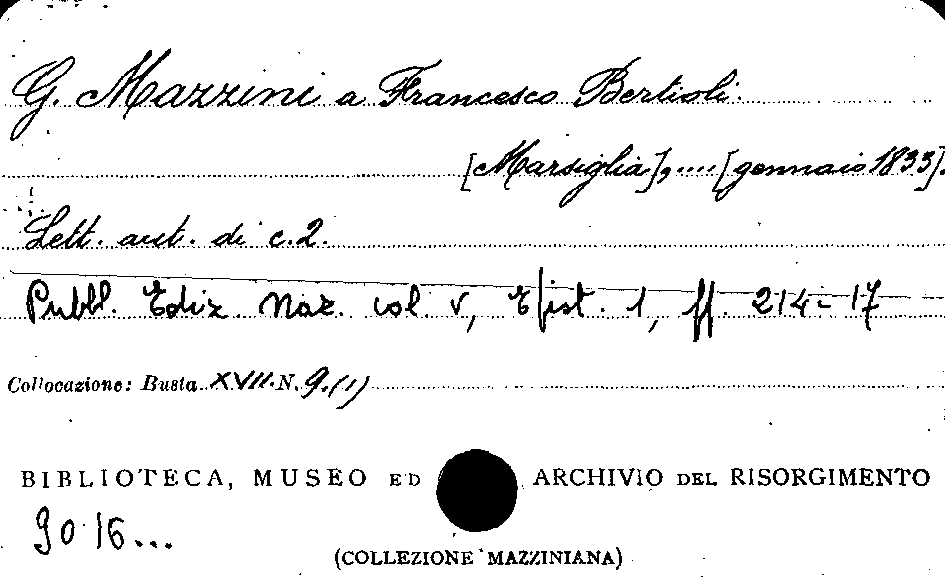 G. Mazzini a Francesco Bertioli.
[Marsiglia], .... [gennaio 1833].
Lett. aut. di c. 2.
Pubbl. Ediz. Naz. vol. V, Epist. 1, pp. 214-17
Collocazione: Busta XVII. N. 9. (1)
BIBLIOTECA, MUSEO ED ARCHIVIO DEL RISORGIMENTO
90 16...
(COLLEZIONE MAZZINIANA)